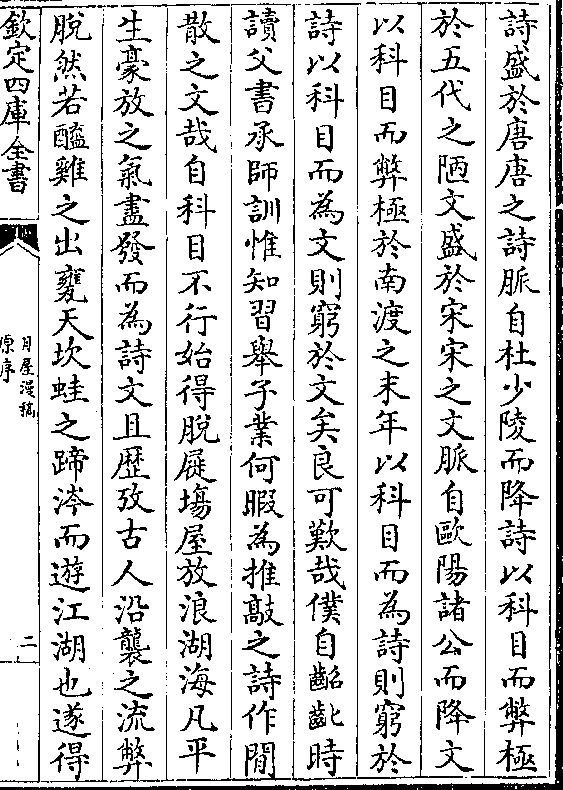 詩盛於唐唐之詩脈自杜少陵而降詩以科目而弊極
於五代之陋文盛於宋宋之文脈自歐陽諸公而降文
以科目而弊極於南渡之末年以科目而為詩則窮於
詩以科目而為文則窮於文矣良可歎哉僕自齠齔時
讀父書承師訓惟知習舉子業何暇為推敲之詩作閒
散之文哉自科目不行始得脫屣場屋放浪湖海凡平
生豪放之氣盡發而為詩文且歴攷古人沿襲之流弊
脫然若醯雞之出甕天坎蛙之蹄涔而遊江湖也遂得
欽定四庫全書
月屋漫稿
原序
二